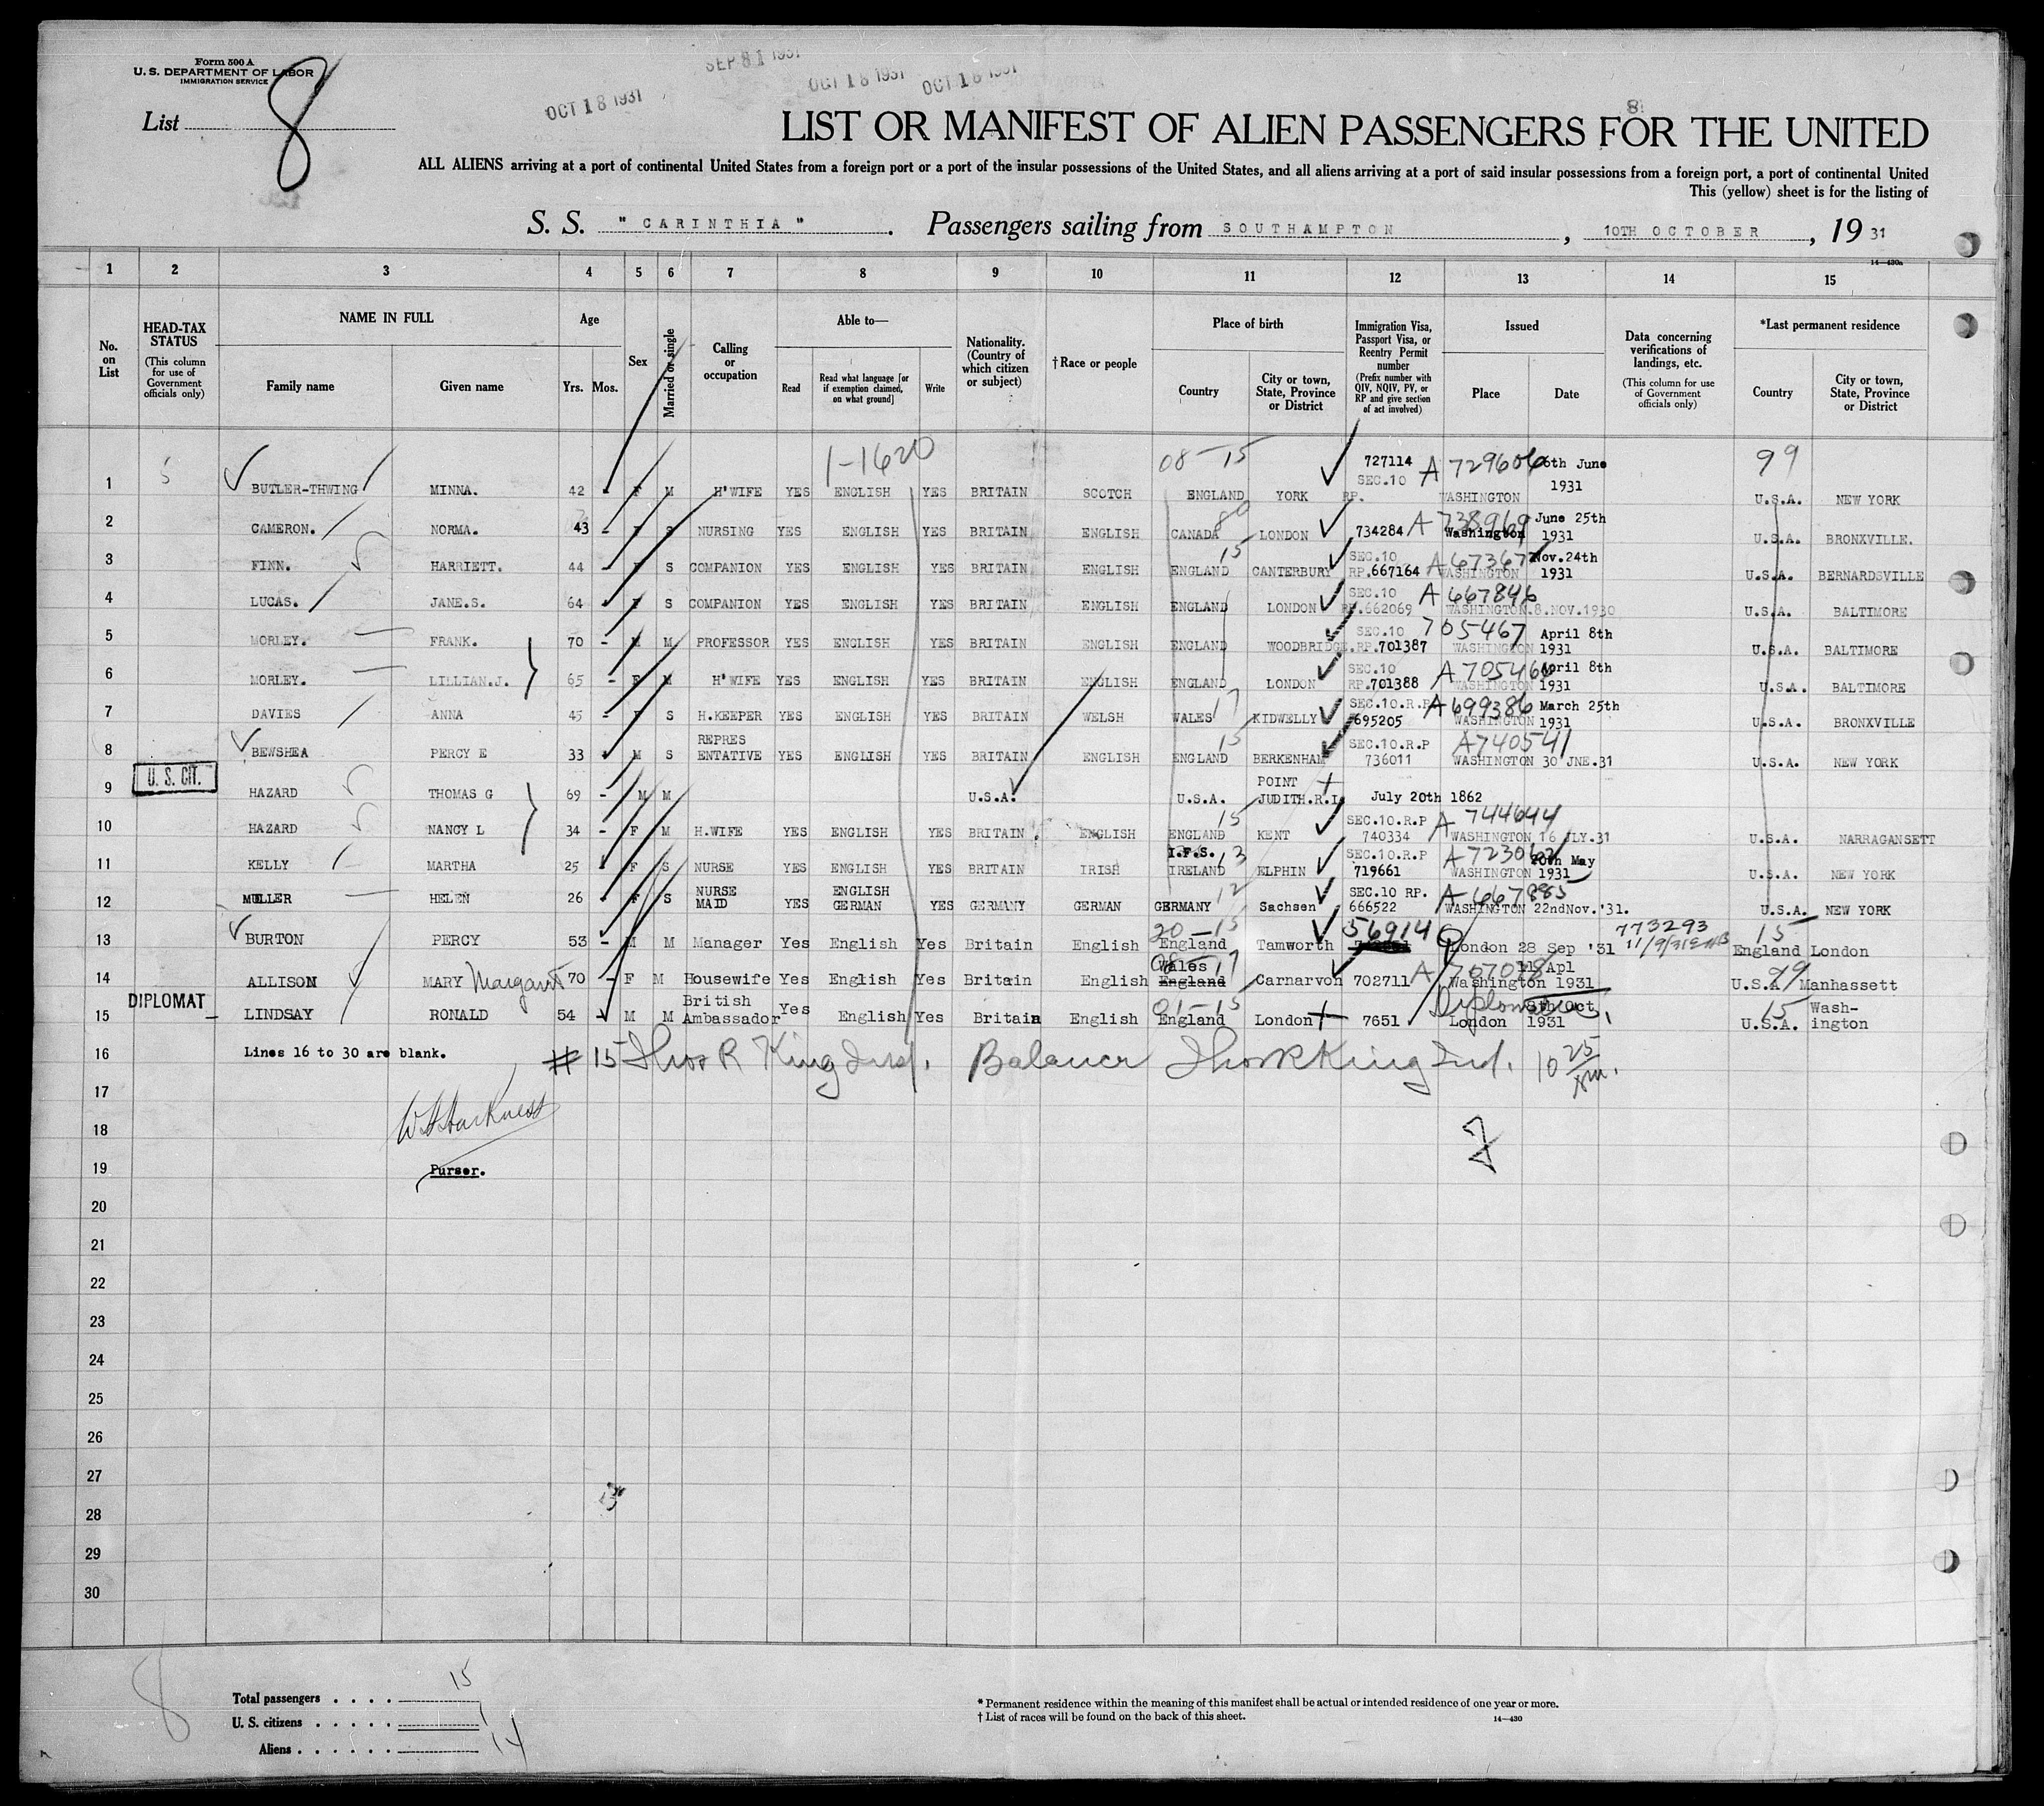 Form 500 A
U. S. DEPARTMENT OF LABOR
IMMIGRATION SERVICE
List 8
OCT 18 1931
SEP 81 1931
OCT 18 1931
OCT 18 1931
8
LIST OR MANIFEST OF ALIEN PASSENGERS FOR THE UNITED
ALL ALIENS arriving at a port of continental United States from a foreign port or a port of the insular possessions of the United States, and all aliens arriving at a port of said insular possessions from a foreign port, a port of continental United
This (yellow) sheet is for the listing of
S. S. "CARINTHIA". Passengers sailing from SOUTHAMPTON, 10TH OCTOBER, 1931
14—430a
1 2 3 4 5 6 7 8 9 10 11 12 13 14 15
No. on List
HEAD-TAX STATUS (This column for use of Government officials only)
NAME IN FULL
Family name
Given name
Age
Yrs. Mos.
Sex
Married or single
Calling or occupation
Able to—
Read
Read what language [or if exemption claimed, on what ground]
Write
Nationality. (Country of which citizen or subject)
†Race or people
Place of birth
Country
City or town, State, Province or District
Immigration Visa, Passport Visa, or Reentry Permit number (Prefix number with QIV, NQIV, PV, or RP and give section of act involved)
Issued
Place
Date
Data concerning verifications of landings, etc. (This column for use of Government officials only)
*Last permanent residence
Country
City or town, State, Province or District
5 1-1620 08-15 99
1 BUTLER-THWING MINNA. 42 - F M H'WIFE YES ENGLISH YES BRITAIN SCOTCH ENGLAND YORK RP. 727114 SEC.10 A 729606 WASHINGTON 6th June 1931 U.S.A. NEW YORK
2 CAMERON. NORMA. 43 - F S NURSING YES ENGLISH YES BRITAIN ENGLISH CANADA 80 LONDON 734284 A 738969 Washington June 25th 1931 U.S.A. BRONXVILLE.
3 FINN. HARRIETT. 44 F S COMPANION YES ENGLISH YES BRITAIN ENGLISH ENGLAND 15 CANTERBURY SEC.10 RP.667164 A 67367 WASHINGTON Nov.24th 1931 U.S.A. BERNARDSVILLE
4 LUCAS. JANE.S. 64 - F S COMPANION YES ENGLISH YES BRITAIN ENGLISH ENGLAND LONDON SEC.10 RP.662069 A 667846 WASHINGTON.8.NOV.1930 U.S.A. BALTIMORE
5 MORLEY. FRANK. 70 - M M PROFESSOR YES ENGLISH YES BRITAIN ENGLISH ENGLAND WOODBRIDGE. SEC.10 RP.701387 705467 WASHINGTON April 8th 1931 U.S.A. BALTIMORE
6 MORLEY. LILLIAN.J. 65 - F M H'WIFE YES ENGLISH YES BRITAIN ENGLISH ENGLAND LONDON SEC.10 RP.701388 A 705466 WASHINGTON April 8th 1931 U.S.A. BALTIMORE
7 DAVIES ANNA 45 - F S H.KEEPER YES ENGLISH YES BRITAIN WELSH WALES 17 KIDWELLY SEC.10.R.P 695205 A 699386 WASHINGTON March 25th 1931 U.S.A. BRONXVILLE
8 BEWSHEA PERCY E 33 - M S REPRES ENTATIVE YES ENGLISH YES BRITAIN ENGLISH ENGLAND 15 BERKENHAM SEC.10.R.P 736011 A 740541 WASHINGTON 30 JNE.31 U.S.A. NEW YORK
9 U. S. CIT. HAZARD THOMAS G 69 - M M U.S.A. U.S.A. POINT JUDITH.R.I. July 20th 1862
10 HAZARD NANCY L 34 - F M H.WIFE YES ENGLISH YES BRITAIN. ENGLISH ENGLAND 15 KENT SEC.10.R.P 740334 A 744644 WASHINGTON 16 JLY.31 U.S.A. NARRAGANSETT
11 KELLY MARTHA 25 - F S NURSE YES ENGLISH YES BRITAIN IRISH I.F.S. IRELAND 13 ELPHIN SEC.10.R.P 719661 A 723062 WASHINGTON 20th May 1931 U.S.A. NEW YORK
12 MULLER HELEN 26 - F S NURSE MAID YES ENGLISH GERMAN YES GERMANY GERMAN GERMANY 12 Sachsen SEC.10 RP. 666522 A 667885 WASHINGTON 22ndNov.'31. U.S.A. NEW YORK
13 BURTON PERCY 53 - M M Manager Yes English Yes Britain English 20-15 England Tamworth 56914 London 28 Sep '31 773293 15 England London
14 ALLISON MARY Margaret 70 - F M Housewife Yes English Yes Britain English 08-17 Wales England Carnarvon 702711 A 707078 Washington Apl 1931 99 U.S.A. Manhassett
15 DIPLOMAT LINDSAY RONALD 54 - M M British Ambassador Yes English Yes Britain English 01-15 England London 7651 London 8th Oct 1931 15 U.S.A. Wash-ington
16 Lines 16 to 30 are blank. # 15 Thos R King Insp. Balance Thos R King Insp. 10 25/pm.
17
18
19 Purser.
20
21
22
23
24
25
26
27
28
29
30
8
Total passengers . . . . 15
U. S. citizens . . . . . 1
Aliens . . . . . . 14
* Permanent residence within the meaning of this manifest shall be actual or intended residence of one year or more.
† List of races will be found on the back of this sheet. 14—430